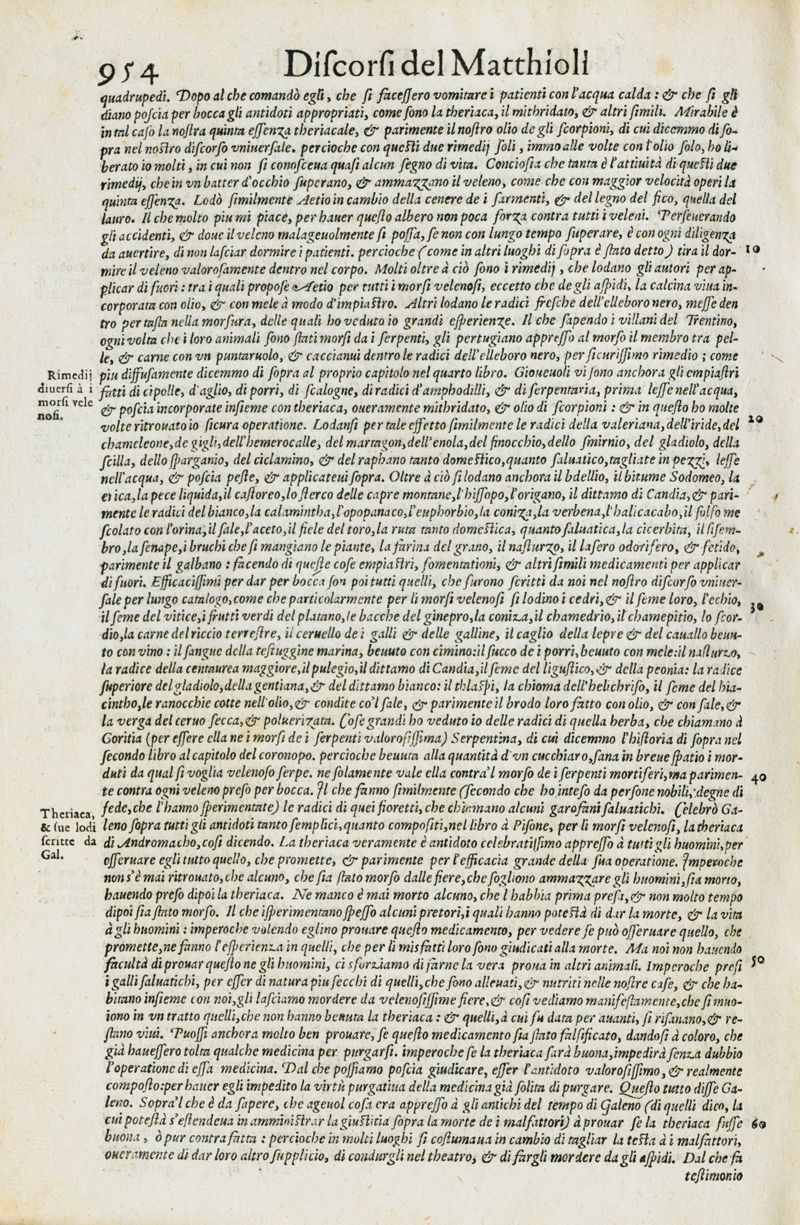 954
Discorsi del Matthioli
quadrupedi. Dopo al che comandò egli, che si facessero vomitare i patienti con l'acqua calda : & che si gli
diano poscia per bocca gli antidoti appropriati, come sono la theriaca, il mithridato, & altri simili. Mirabile è
in tal caso la nostra quinta essenza theriacale, & parimente il nostro olio de gli scorpioni, di cui dicemmo di so-
pra nel nostro discorso vniuersale. percioche con questi due rimedij soli, immo alle volte con l'olio solo, ho li-
berato io molti, in cui non si conosceua quasi alcun segno di vita. Conciosia che tanta è l'attiuità di questi due
rimedij, che in vn batter d'occhio superano, & ammazzano il veleno, come che con maggior velocità operi la
quinta essenza. Lodò similmente Aetio in cambio della cenere de i sarmenti, & del legno del fico, quella del
lauro. Il che molto piu mi piace, per hauer questo albero non poca forza contra tutti i veleni. Perseuerando
gli accidenti, & doue il veleno malageuolmente si possa, se non con lungo tempo superare, è con ogni diligenza
da auertire, di non lasciar dormire i patienti. percioche (come in altri luoghi di sopra è stato detto) tira il dor- 10
mire il veleno valorosamente dentro nel corpo. Molti oltre à ciò sono i rimedij, che lodano gli autori per ap-
plicar di fuori : tra i quali propose Aetio per tutti i morsi velenosi, eccetto che de gli aspidi, la calcina viua in-
corporata con olio, & con mele à modo d'impiastro. Altri lodano le radici fresche dell'elleboro nero, messe den
tro per tasta nella morsura, delle quali ho veduto io grandi esperienze. Il che sapendo i villani del Trentino,
ogni volta che i loro animali sono stati morsi da i serpenti, gli pertugiano appresso al morso il membro tra pel-
le, & carne con vn puntaruolo, & caccianui dentro le radici dell'elleboro nero, per sicurissimo rimedio ; come
Rimedij
diuersi à i
morsi vele
nosi.
piu diffusamente dicemmo di sopra al proprio capitolo nel quarto libro. Gioueuoli vi sono anchora gli empiastri
fatti di cipolle, d'aglio, di porri, di scalogne, di radici d'amphodilli, & di serpentaria, prima lesse nell'acqua,
& poscia incorporate insieme con theriaca, oueramente mithridato, & olio di scorpioni : & in questo ho molte
volte ritrouato io sicura operatione. Lodansi per tale effetto similmente le radici della valeriana, dell'iride, del 20
chameleone, de gigli, dell'hemerocalle, del martagon, dell'enola, del finocchio, dello smirnio, del gladiolo, della
scilla, dello sparganio, del ciclamino, & del raphano tanto domestico, quanto saluatico, tagliate in pezzi, lesse
nell'acqua, & poscia peste, & applicateui sopra. Oltre à ciò si lodano anchora il bdellio, il bitume Sodomeo, la
erica, la pece liquida, il castoreo, lo sterco delle capre montane, l'hissopo, l'origano, il dittamo di Candia, & pari-
mente le radici del bianco, la calamintha, l'opopanaco, l'euphorbio, la coniza, la verbena, l'halicacabo, il solfo me
scolato con l'orina, il sale, l'aceto, il fiele del toro, la ruta tanto domestica, quanto saluatica, la cicerbita, il sisem-
bro, la senape, i bruchi che si mangiano le piante, la farina del grano, il nasturzo, il lasero odorifero, & fetido,
parimente il galbano : facendo di queste cose empiastri, fomentationi, & altri simili medicamenti per applicar
di fuori. Efficacissimi per dar per bocca son poi tutti quelli, che furono scritti da noi nel nostro discorso vniuer-
sale per lungo catalogo, come che particolarmente per li morsi velenosi si lodino i cedri, & il seme loro, l'echio, 30
il seme del vitice, i frutti verdi del platano, le bacche del ginepro, la coniza, il chamedrio, il chamepitio, lo scor-
dio, la carne del riccio terrestre, il ceruello de i galli & delle galline, il caglio della lepre & del cauallo beuu-
to con vino : il sangue della testuggine marina, beuuto con cimino: il succo de i porri, beuuto con mele: il nasturzo,
la radice della centaurea maggiore, il pulegio, il dittamo di Candia, il seme del ligustico, & della peonia: la radice
superiore del gladiolo, della gentiana, & del dittamo bianco: il thlaspi, la chioma dell'helichriso, il seme del hia-
cintho, le ranocchie cotte nell'olio, & condite co'l sale, & parimente il brodo loro fatto con olio, & con sale, &
la verga del ceruo secca, & poluerizata. Cose grandi ho veduto io delle radici di quella herba, che chiamano à
Goritia (per essere ella ne i morsi de i serpenti valorosissima) Serpentina, di cui dicemmo l'historia di sopra nel
secondo libro al capitolo del coronopo. percioche beuuta alla quantità d'vn cucchiaro, sana in breue spatio i mor-
duti da qual si voglia velenoso serpe. ne solamente vale ella contra'l morso de i serpenti mortiferi, ma parimen- 40
te contra ogni veleno preso per bocca. Il che fanno similmente (secondo che ho inteso da persone nobili, degne di
fede, che l'hanno sperimentate) le radici di quei fioretti, che chiamano alcuni garofani saluatichi. Celebrò Ga-
Theriaca,
& sue lodi
scritte da
Gal.
leno sopra tutti gli antidoti tanto semplici, quanto compositi, nel libro à Pisone, per li morsi velenosi, la theriaca
di Andromacho, cosi dicendo. La theriaca veramente è antidoto celebratissimo appresso à tutti gli huomini, per
osseruare egli tutto quello, che promette, & parimente per l'efficacia grande della sua operatione. Imperoche
non s'è mai ritrouato, che alcuno, che sia stato morso dalle fiere, che sogliono ammazzare gli huomini, sia morto,
hauendo preso dipoi la theriaca. Ne manco è mai morto alcuno, che l habbia prima presa, & non molto tempo
dipoi sia stato morso. Il che isperimentano spesso alcuni pretori, i quali hanno potestà di dar la morte, & la vita
à gli huomini : imperoche volendo eglino prouare questo medicamento, per vedere se può osseruare quello, che
promette, ne fanno l'esperienza in quelli, che per li misfatti loro sono giudicati alla morte. Ma noi non hauendo
facultà di prouar questo ne gli huomini, ci sforziamo di farne la vera proua in altri animali. Imperoche presi 50
i galli saluatichi, per esser di natura piu secchi di quelli, che sono alleuati, & nutriti nelle nostre case, & che ha-
bitano insieme con noi, gli lasciamo mordere da velenosissime fiere, & cosi vediamo manifestamente, che si muo-
iono in vn tratto quelli, che non hanno beuuta la theriaca : & quelli, à cui fu data per auanti, si risanano, & re-
stano viui. Puossi anchora molto ben prouare, se questo medicamento sia stato falsificato, dandosi à coloro, che
già hauessero tolta qualche medicina per purgarsi. imperoche se la theriaca sarà buona, impedirà senza dubbio
l'operatione di essa medicina. Dal che possiamo poscia giudicare, esser l'antidoto valorosissimo, & realmente
composto: per hauer egli impedito la virtù purgatiua della medicina già solita di purgare. Questo tutto disse Ga-
leno. Sopra'l che è da sapere, che ageuol cosa era appresso à gli antichi del tempo di Galeno (di quelli dico, la
cui potestà s'estendeua in amministrar la giustitia sopra la morte de i malfattori) à prouar se la theriaca fusse 60
buona, ò pur contrafatta : percioche in molti luoghi si costumaua in cambio di tagliar la testa à i malfattori,
oueramente di dar loro altro supplicio, di condurgli nel theatro, & di fargli mordere da gli aspidi. Dal che fa
testimonio